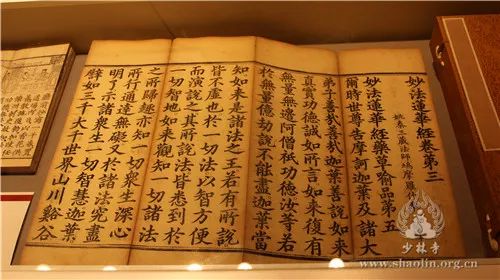 妙法蓮華經卷第三
姚秦三藏法師鳩摩羅
妙法蓮華經藥草喻品第五
爾時世尊告摩訶迦葉及諸大
弟子善哉善哉迦葉善說如來
真實功德誠如所言如來復有
無量無邊阿僧祇功德汝等若
於無量億劫說不能盡迦葉當
知如來是諸法之王若有所說
皆不虛也於一切法以智方便
而演說之其所說法皆悉到於
一切智地如來觀知一切諸法
之所歸趣亦知一切衆生深心
所行通達無礙又於諸法究盡
明了示諸衆生一切智慧迦葉
譬如三千大千世界山川谿谷
少林寺
www.shaolin.org.cn